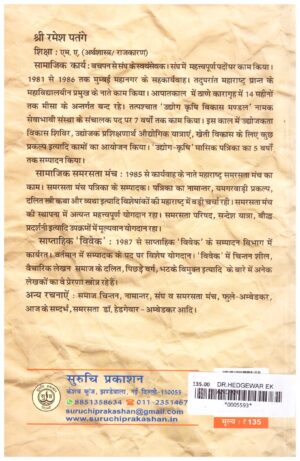 श्री रमेश पतंगे
शिक्षा : एम. ए. (अर्थशास्त्र/ राजकारण)
सामाजिक कार्य : बचपन से संघ के स्वयंसेवक। संघ में महत्त्वपूर्ण पदों पर काम किया।
1981 से 1986 तक मुम्बई महानगर के सहकार्यवाह। तदुपरांत महाराष्ट्र प्रान्त के
महाविद्यालयीन प्रमुख के नाते काम किया। आपातकाल में ठाणे कारागृह में 14 महीनों
तक मीसा के अन्तर्गत बन्द रहे। तत्पश्चात 'उद्योग कृषि विकास मण्डल' नामक
सेवाभावी संस्था के संचालक पद पर 7 वर्षों तक काम किया। इस काल में उद्योजकता
विकास शिविर, उद्योजक प्रशिक्षणार्थ औद्योगिक यात्राएं, खेती विकास के लिए कुछ
प्रकल्प इत्यादि कामों का आयोजन किया। 'उद्योग-कृषि' मासिक पत्रिका का 5 वर्षों
तक सम्पादन किया।
सामाजिक समरसता मंच : 1985 से कार्यवाह के नाते महाराष्ट्र समरसता मंच का
काम। समरसता मंच पत्रिका के सम्पादक। पत्रिका का नामान्तर, यमगरवाड़ी प्रकल्प,
दलित स्त्री कथा और व्यथा इत्यादि विशेषांकों की महाराष्ट्र में बड़ी चर्चा रही। समरसता मंच
की स्थापना में अत्यन्त महत्त्वपूर्ण योगदान रहा। समरसता परिषद, सन्देश यात्रा, बौद्ध
प्रदर्शनी इत्यादि उपक्रमों में मूल्यवान योगदान रहा।
साप्ताहिक 'विवेक' : 1987 से साप्ताहिक 'विवेक' के सम्पादन विभाग में
कार्यरत। वर्तमान में सम्पादक के पद पर विशेष योगदान। 'विवेक' में चिन्तन शील,
वैचारिक लेखन समाज के दलित, पिछड़े वर्ग, भटके विमुक्त इत्यादि के बारे में अनेक
लेखकों का वे प्रेरणा स्त्रोत रहे हैं।
अन्य रचनाएँ : समाज चिन्तन, नामान्तर, संघ व समरसता मंच, फुले-अम्बेडकर,
आज के सन्दर्भ, समरसता डॉ. हेडगेवार - अम्बेडकर आदि।
सुरुचि प्रकाशन
केशव कुंज, झण्डेवाला, नई दिल्ली-110055
8851358634 011-2351467
suruchiprakashan@gmail.com
www.suruchiprakashan.in
135.00 DR.HEDGEWAR EK
*0005593*
मूल्य : ₹ 135